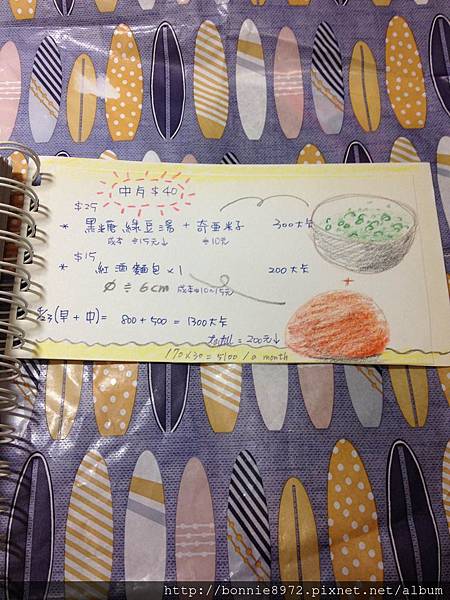 中斥 $40
$25
* 黑糖綠豆湯 + 奇亞籽 300大卡
成本 $15元↓ $10元
$15
* 紅酒麵包 x1 200大卡
Ø ≑ 6cm 成本$10~15元
(早+中) = 800 + 500 = 1300大卡
= 200元↓
170x30 = 5100 / a month
+
http://bonnie8972.pixnet.net/album